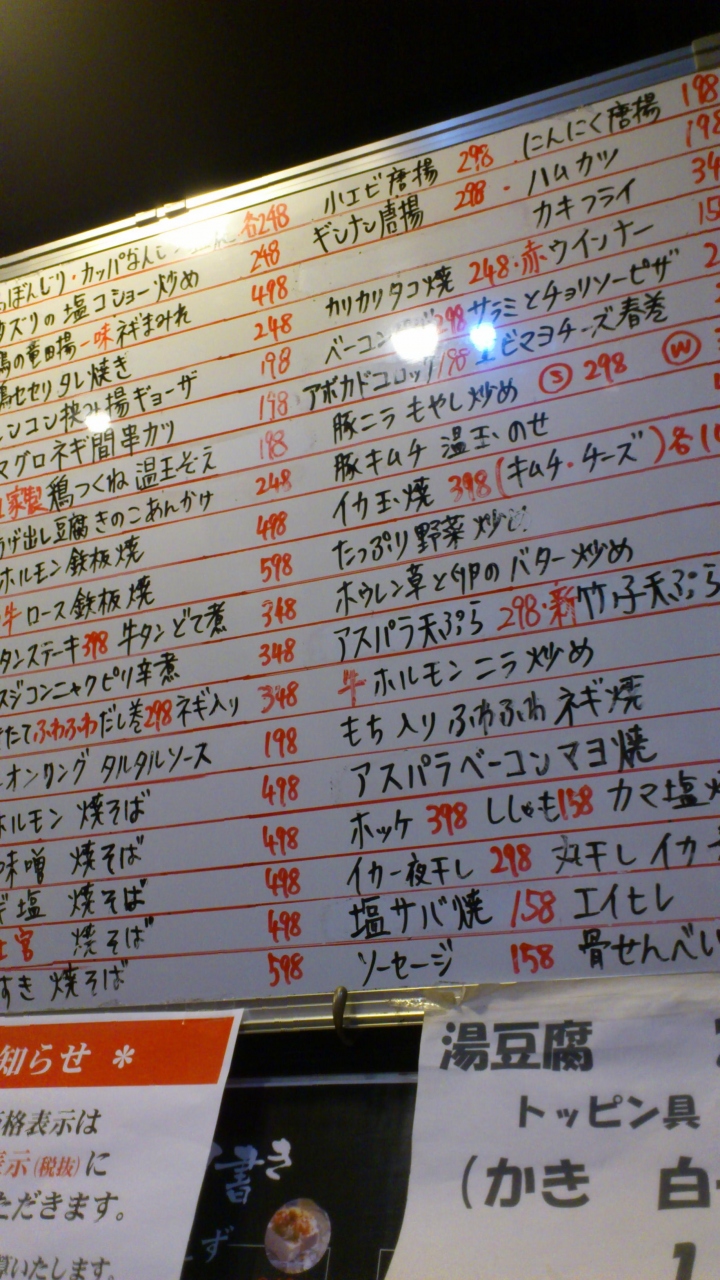 ぼんじり・カッパなんこつ 各248
ズリの塩コショー炒め 248
鶏の竜田揚 一味ネギまみれ 498
鶏セセリタレ焼き 248
レンコン挟み揚ギョーザ 198
マグロネギ間串カツ 198
自家製鶏つくね 温玉そえ 198
揚げ出し豆腐きのこあんかけ 248
ホルモン鉄板焼 498
牛ロース鉄板焼 598
タンステーキ398 牛タンどて煮 348
スジコンニャクピリ辛煮 348
たてふわふわだし巻298 ネギ入り 348
オニオンリング タルタルソース 198
ホルモン 焼そば 498
味噌 焼そば 498
塩 焼そば 498
宮 焼そば 498
すき 焼そば 598
小エビ唐揚 298 にんにく唐揚 198
ギンナン唐揚 298・ハムカツ 198
カキフライ
カリカリタコ焼 248・赤ウインナー
ベーコン 298 サラミとチョリソーピザ
アボカドコロッケ198 エビマヨチーズ春巻
豚ニラもやし炒め Ⓢ 298 Ⓦ
豚キムチ 温玉のせ
イカ玉焼 398(キムチ・チーズ)各
たっぷり野菜炒め
ホウレン草と卵のバター炒め
アスパラ天ぷら 298・新竹の子天ぷら
牛ホルモンニラ炒め
もち入りふわふわネギ焼
アスパラベーコンマヨ焼
ホッケ 398 ししゃも158 カマ塩
イカ一夜干し 298 丸干しイカ
塩サバ焼 158 エイヒレ
ソーセージ 158 骨せんべい
知らせ ＊
格表示は
表示(税抜)に
ただきます。
算いたします。
書き
湯豆腐
トッピン具
(かき 白
1